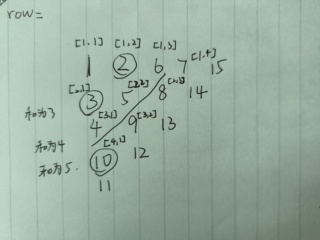 row=
[1,1] [1,2] [1,3] [1,4]
1 2 6 7 15
[2,1] [2,2] [2,3]
3 5 8 14
和为3 [3,1] [3,2]
4 9 13
和为4 [4,1]
和为5. 10 12
11